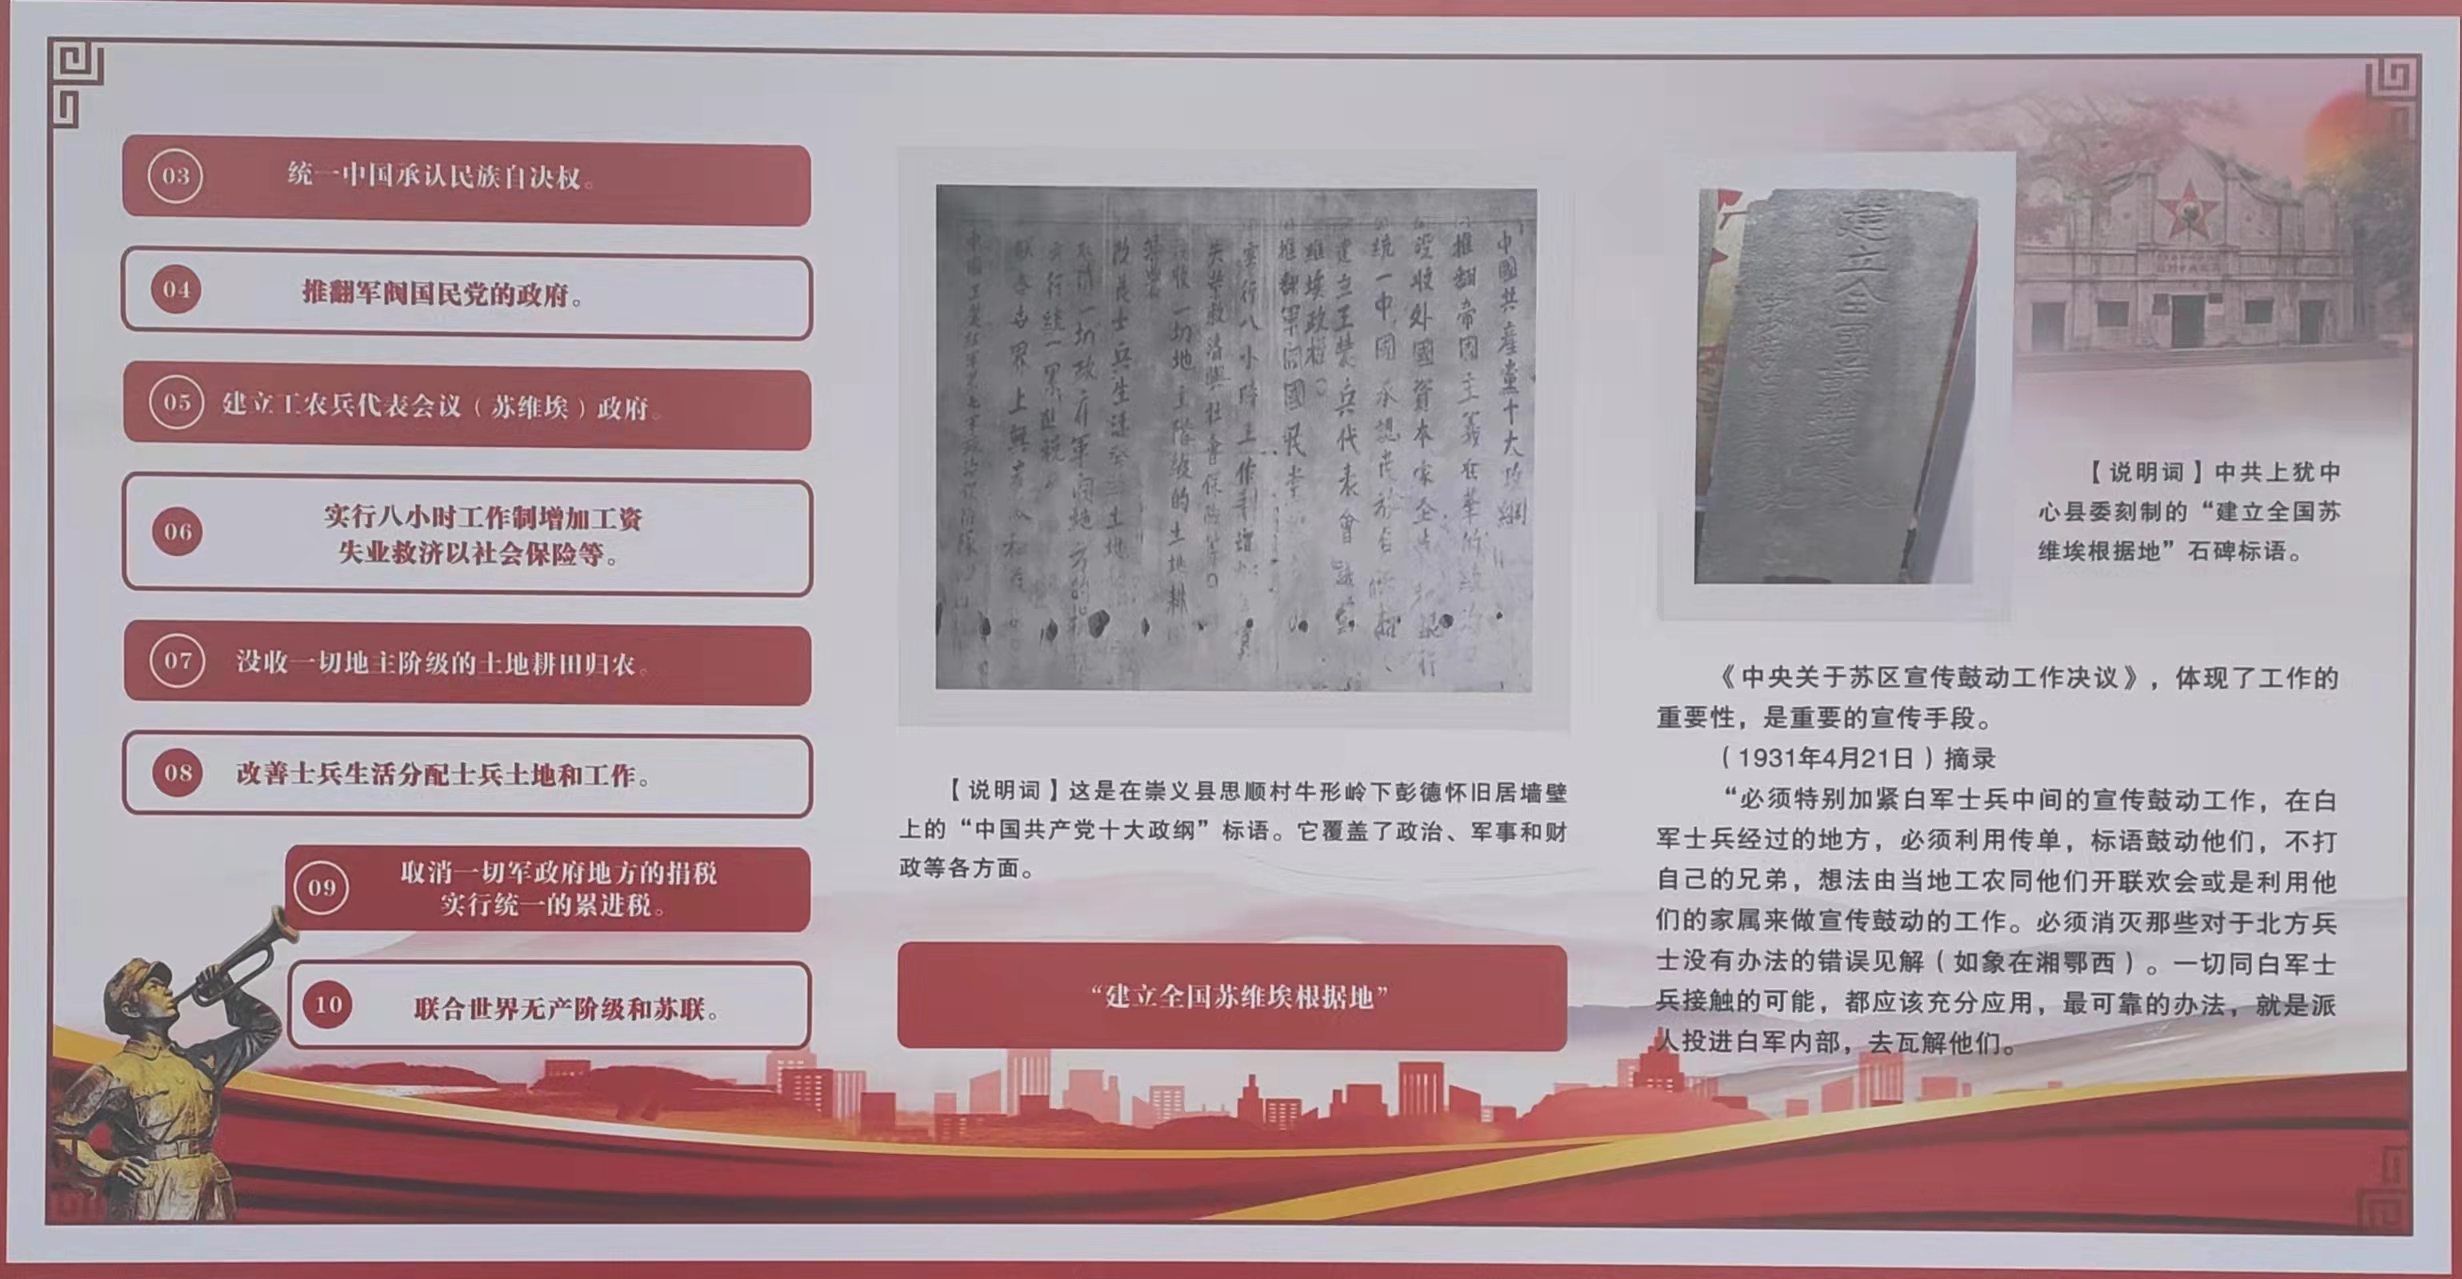 03
统一中国承认民族自决权。
04
推翻军阀国民党的政府。
05
建立工农兵代表会议（苏维埃）政府。
06
实行八小时工作制增加工资
失业救济以社会保险等。
07
没收一切地主阶级的土地耕田归农。
08
改善士兵生活分配士兵土地和工作。
09
取消一切军政府地方的捐税
实行统一的累进税。
10
联合世界无产阶级和苏联。
中國共產黨十大政綱
推翻帝囯主義在華的統治
沒收外國資本家
統一中國承認
建立工農兵代表會議
維埃政權
推翻軍閥國民
實行八小時工作制增加
失業救濟與社會保險等
一切地主階級的土地耕
改良士兵生活
一切政府軍閥地方的
行統一累進稅
世界上無產
【说明词】这是在崇义县思顺村牛形岭下彭德怀旧居墙壁
上的“中国共产党十大政纲”标语。它覆盖了政治、军事和财
政等各方面。
“建立全国苏维埃根据地”
建立全國蘇維埃
【说明词】中共上犹中
心县委刻制的“建立全国苏
维埃根据地”石碑标语。
《中央关于苏区宣传鼓动工作决议》，体现了工作的
重要性，是重要的宣传手段。
（1931年4月21日）摘录
“必须特别加紧白军士兵中间的宣传鼓动工作，在白
军士兵经过的地方，必须利用传单，标语鼓动他们，不打
自己的兄弟，想法由当地工农同他们开联欢会或是利用他
们的家属来做宣传鼓动的工作。必须消灭那些对于北方兵
士没有办法的错误见解（如象在湘鄂西）。一切同白军士
兵接触的可能，都应该充分应用，最可靠的办法，就是派
人投进白军内部，去瓦解他们。